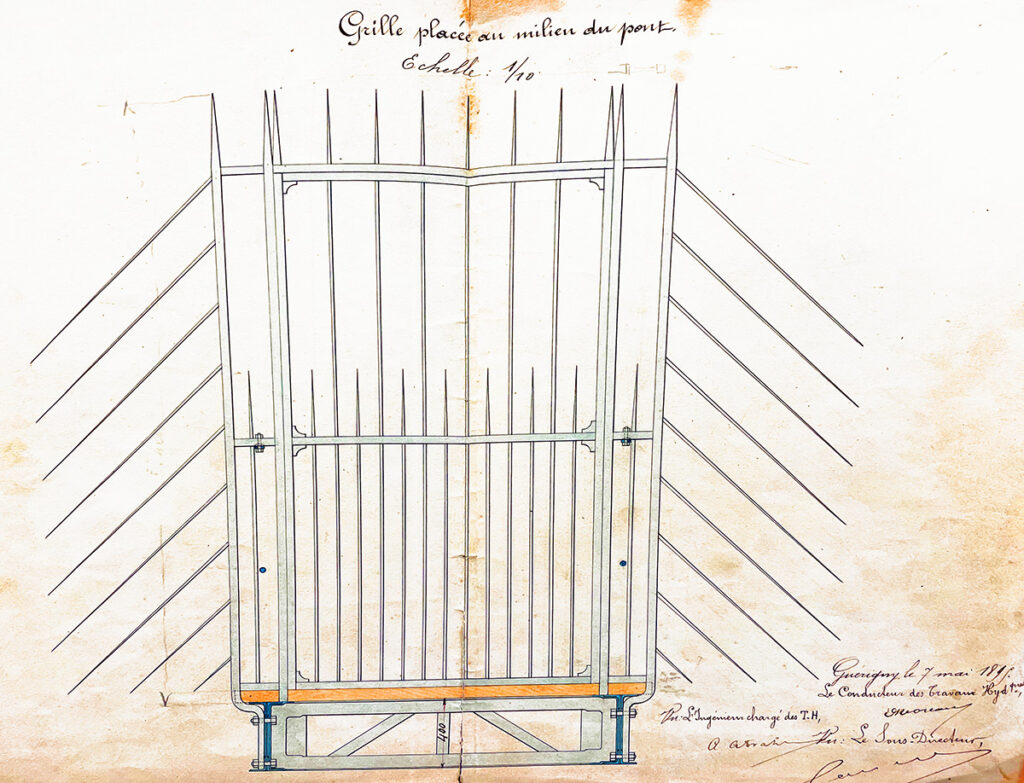 Grille placée au milieu du pont.
Echelle : 1/10
400
Guérigny le 7 mai
Le Conducteur des travaux Hyd
Vu: L'Ingénieur chargé des T.H,
Vu: Le Sous-Directeur,